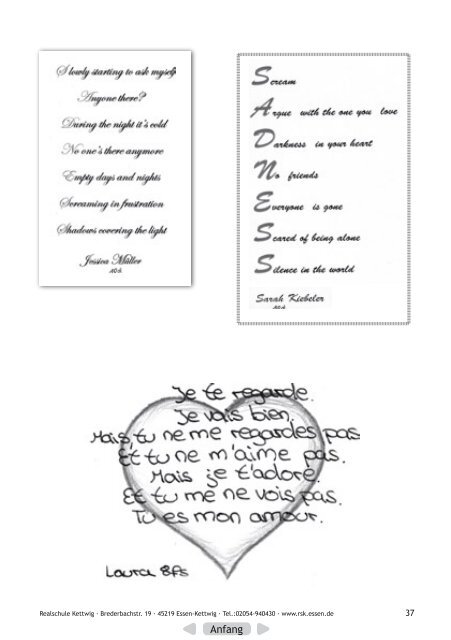 Slowly starting to ask myself
Anyone there?
During the night it's cold
No one's there anymore
Empty days and nights
Screaming in frustration
Shadows covering the light
Jessica Müller
10A
Scream
Argue with the one you love
Darkness in your heart
No friends
Everyone is gone
Scared of being alone
Silence in the world
Sarah Kiebeler
10A
Je te regarde.
Je vais bien.
Mais, tu ne me regardes pas
Et tu ne m'aime pas.
Mais je t'adore.
Et tu me ne vois pas.
Tu es mon amour.
Laura 8fs
Realschule Kettwig · Brederbachstr. 19 · 45219 Essen-Kettwig · Tel.:02054-940430 · www.rsk.essen.de
37
Anfang